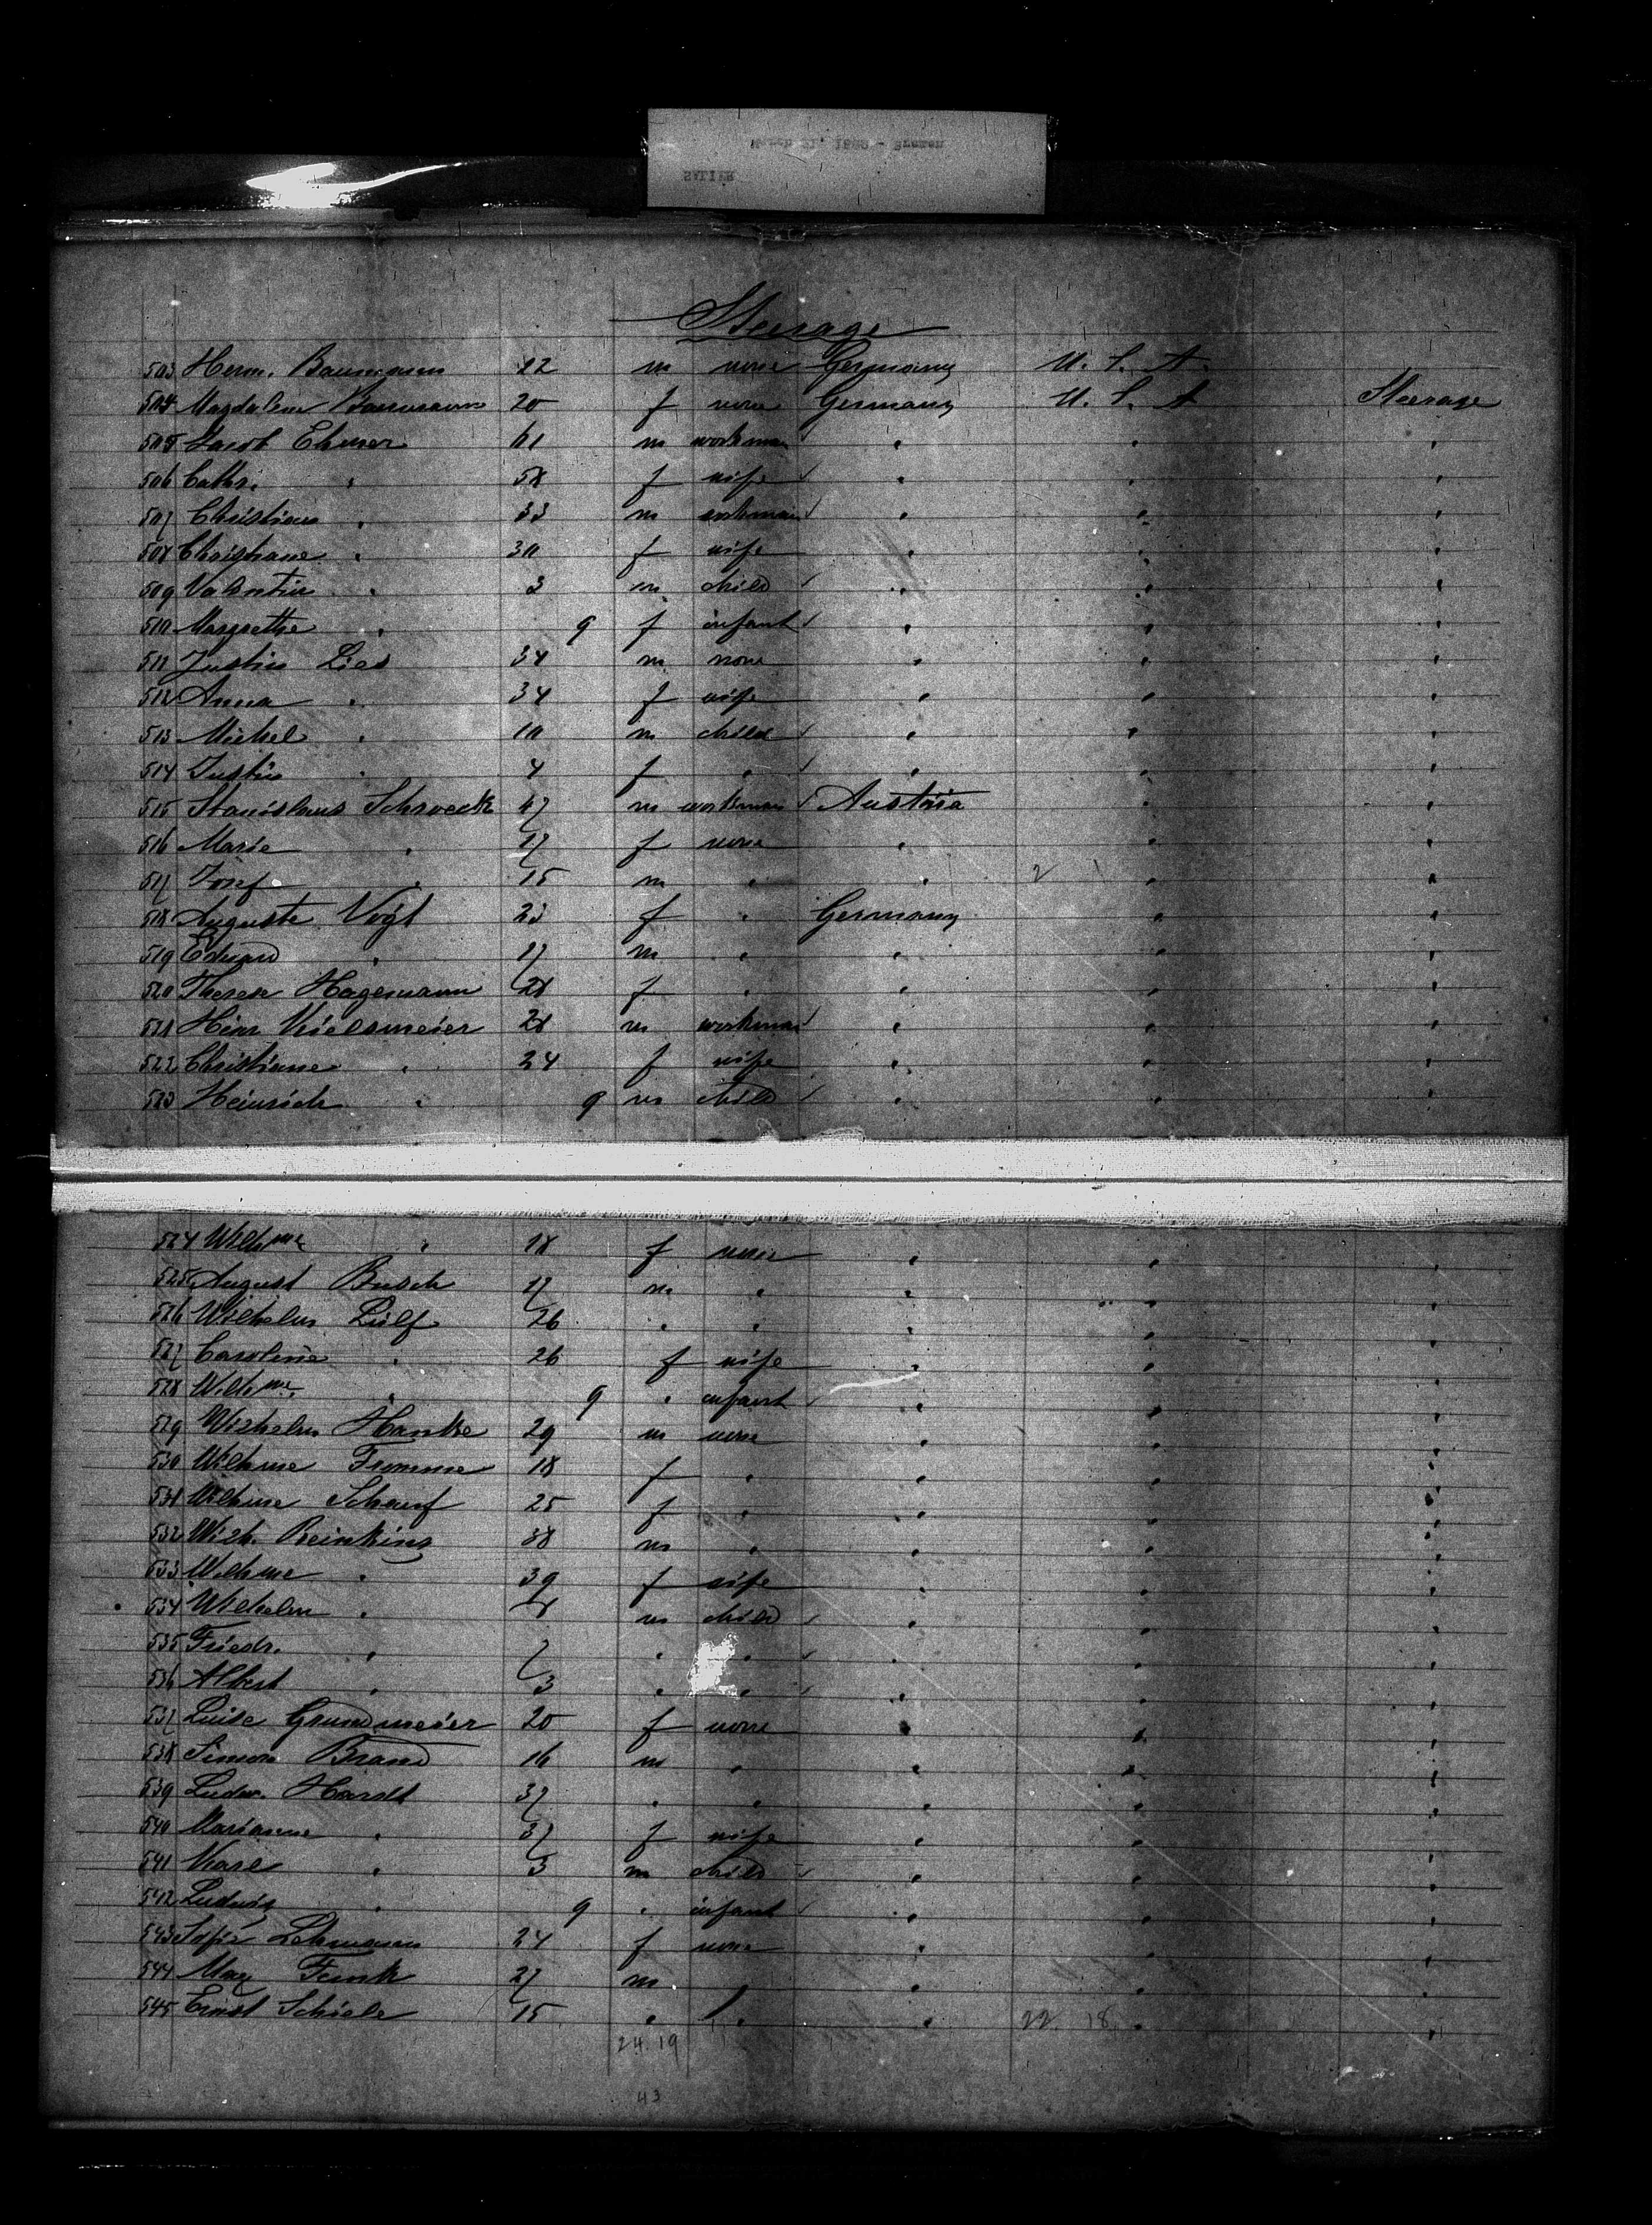 SALIER
Steerage
503 Herm. Baumann 22 m none Germany U. S. A.
504 Magdalene Baumann 20 f none Germany U. S. A Steerage
505 Jacob Ehmer 61 m workman " " "
506 Cathr. " 58 f wife " " "
507 Christian " 33 m workman " " "
508 Christiane " 30 f wife " " "
509 Valentin " 3 m child " " "
510 Margrethe " 9 f infant " " "
511 Justin Lies 34 m none " " "
512 Anna " 34 f wife " " "
513 Michel " 10 m child " " "
514 Justin " 4 f " " " "
515 Stanislaus Schroeck 47 m workman Austria " "
516 Marie " 17 f none " " "
517 Josef " 15 m " " " "
518 Auguste Vogt 23 f " Germany " "
519 Eduard " 17 m " " " "
520 Therese Hagemann 28 f " " " "
521 Heinr Kielsmeier 28 m workman " " "
522 Christiane " 24 f wife " " "
523 Heinrich " 9 m child " " "
524 Wilhme " 18 f none " " "
525 August Busch 17 m " " " "
526 Wilhelm Lülf 26 " " " " "
527 Caroline " 26 f wife " " "
528 Wilhme. " 9 " infant " " "
529 Wilhelm Hanke 29 m none " " "
530 Wilhme Fromme 18 f " " " "
531 Wilhme Scharf 25 f " " " "
532 Wilh. Reinking 38 m " " " "
533 Wilhme " 39 f wife " " "
534 Wilhelm " 8 m child " " "
535 Friedr. " 7 " " " " "
536 Albert " 3 " " " " "
537 Luise Grundmeier 20 f none " " "
538 Simon Brand 16 m " " " "
539 Ludw. Hardt 37 " " " " "
540 Marianne " 37 f wife " " "
541 Karl " 3 m child " " "
542 Ludwig " 9 " infant " " "
543 Sofie Lehmann 24 f none " " "
544 Max Funk 27 m " " " "
545 Ernst Schiele 15 " " " 22 18 " "
24 19
43